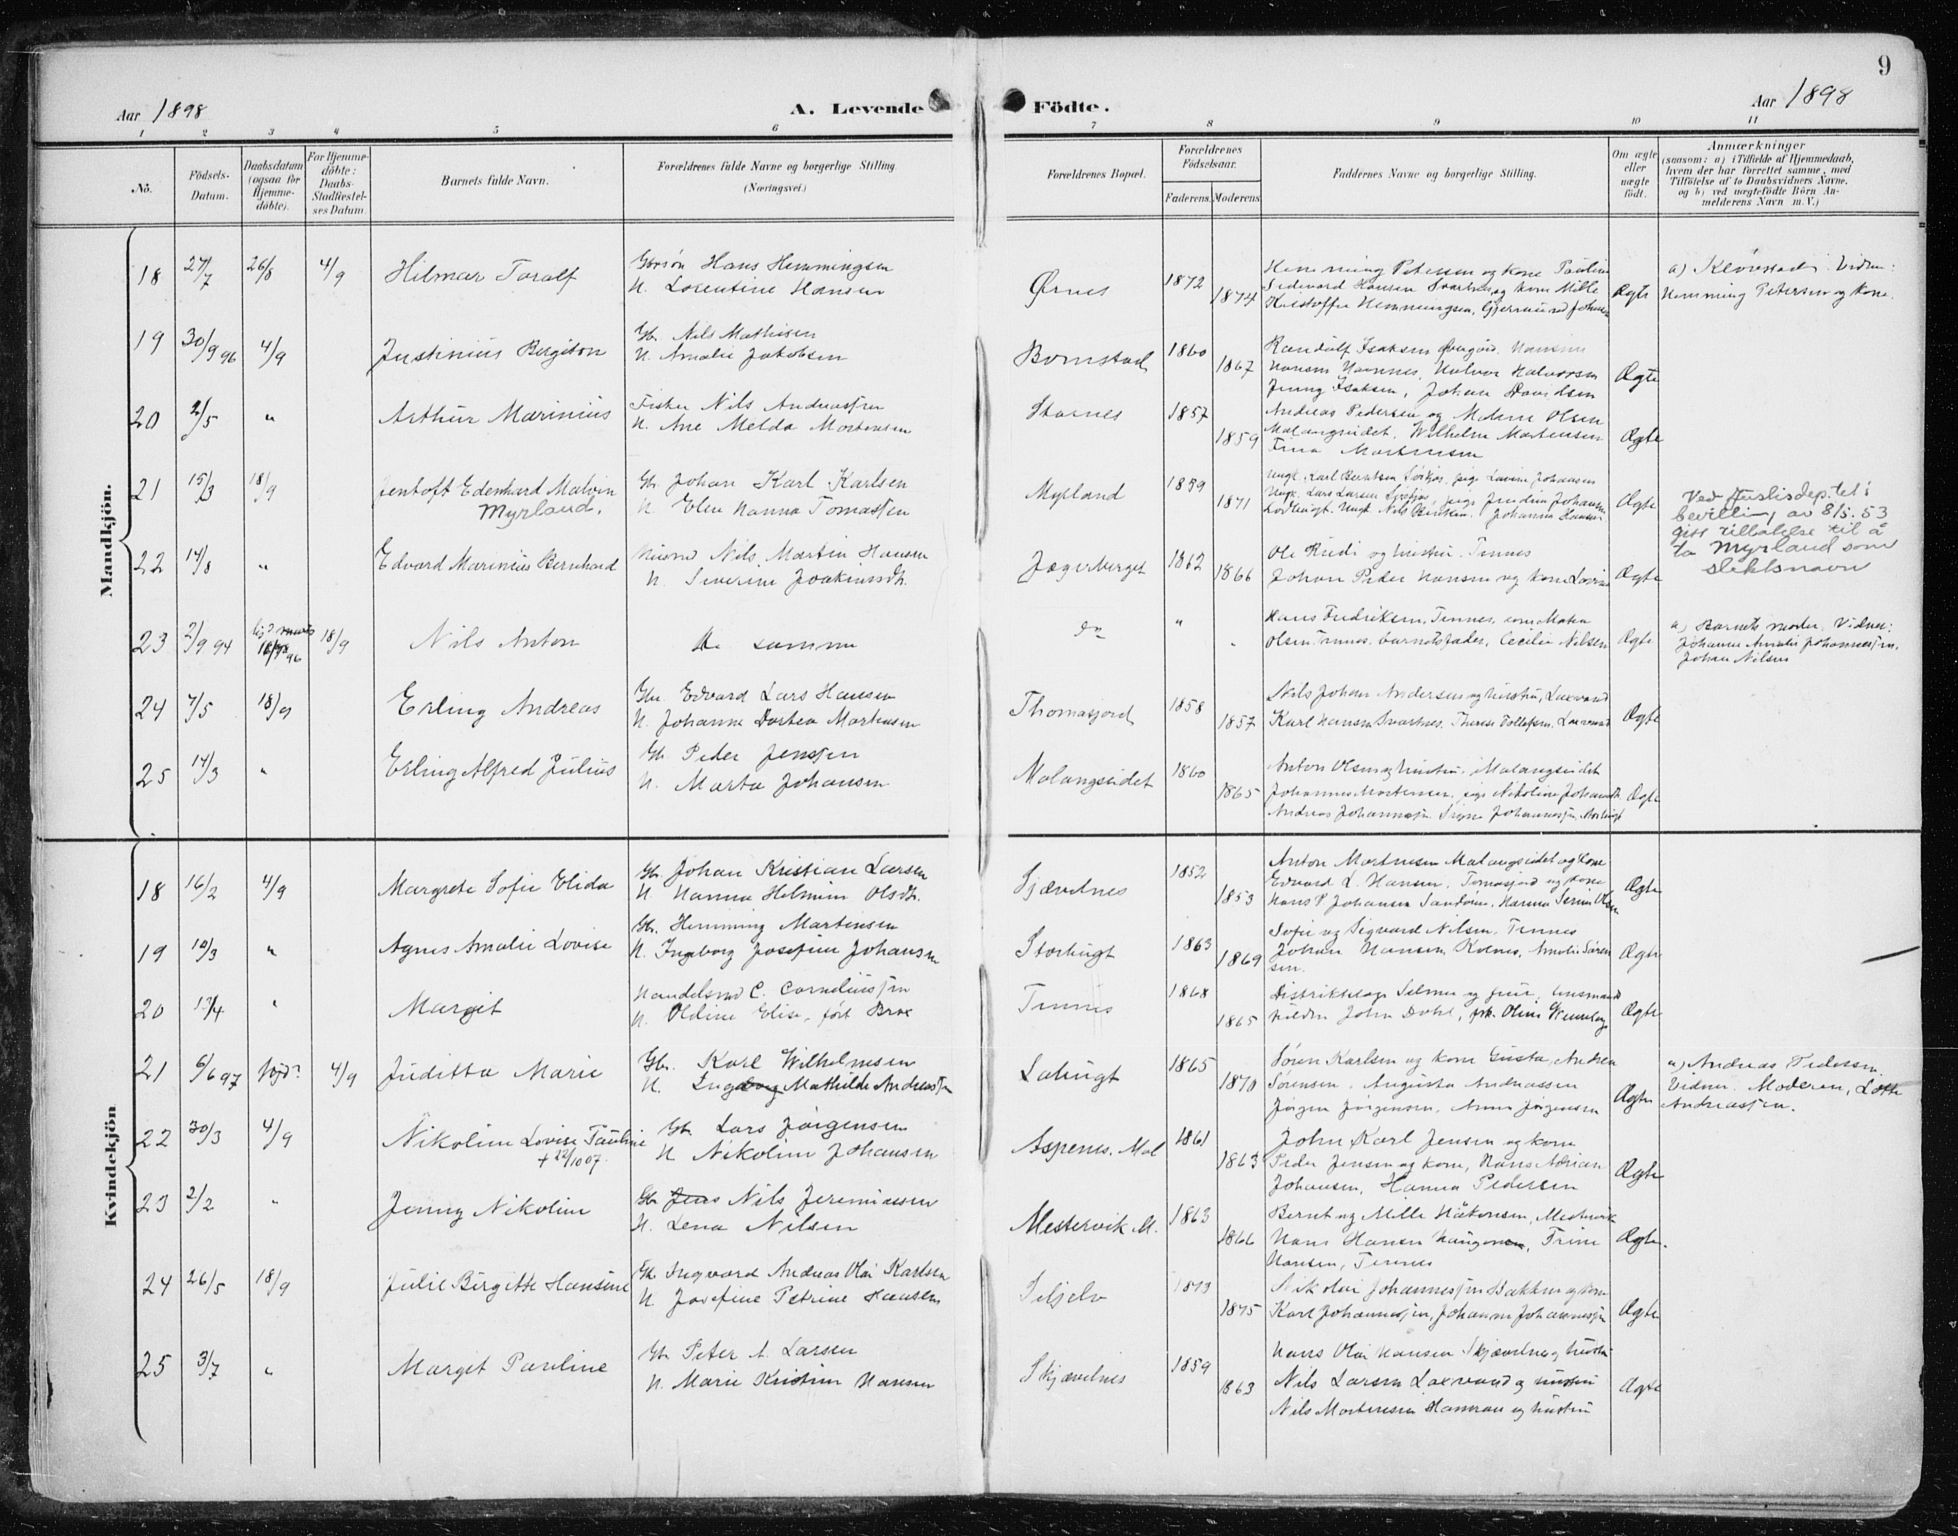 9
Aar 1898
A. Levende Födte.
Aar 1898
1 2 3 4 5 6 7 8 9 10 11
No.
Födsels-Datum.
Daabsdatum (ogsaa for Hjemme-döbte).
For Hjemme-döbte: Daabs-Stadfæstel-ses Datum
Barnets fulde Navn.
Forældrenes fulde Navne og borgerlige Stilling (Næringsvei.)
Forældrenes Bopæl.
Forældrenes Födselsaar.
Faderens. Moderens.
Faddernes Navne og borgerlige Stilling.
Om ægte eller uægte födt.
Anmærkninger
(saasom: a) i Tilfælde af Hjemmedaab, hvem der har forrettet samme, med Tilföielse af to Daabsvidners Navne, og b) ved uægtefödte Börn An-melderens Navn m. V.)
Mandkjön.
18 27/7 26/8 4/9 Hilmar Toralf
Gbrsön Hans Hemmingsen
H. Lorentine Hansen
Ørnes 1872 1874
Hemming Petersen og kone Pauline
Hansen Svartnes og kone Mille
Kristoffer Hemmingsen, Johansen
Ægte
a) Vidner:
Hemming Petersen og kone.
19 30/9 96 4/9 Justinius Bergiton
Gb. Nils Mathisen
H. Amalie Jakobsen
Bomstad 1860 1867
Randolf Isaksen Hansine
Hansen Havnnes, Halvor Halvorsen
Jenny Isaksen, Johan Davidsen
Ægte
20 2/5 " Arthur Marinius
Fisker Nils Andreassen
H. Ane Melda Mortensen
Starnes 1857 1859
Andreas Pedersen og Malene Olsen
Malangseidet, Wilhelm Mortensen
Trina Mortensen
Ægte
21 15/3 18/9 Jentoft Edenhard Malvin
Myrland,
Gb. Johan Karl Karlsen
H. Elen Hanna Tomassen
Myrland 1859 1871
Ungk. Karl Berntsen pige Lovise Johansen
Ungk. Lars Larsen pige Johansen
Ungk. Nils Johanna Hansen
Ægte
Ved Justisdep.tet's
bevilling av 8/5. 53
gitt tillatelse til å
ta Myrland som
slektsnavn
22 14/8 " Edvard Marinius Bernhard
Nils Martin Hansen
H. Severine Joakimsdt.
Jægerberget 1862 1866
Ole og hustru. Tennes
Johan Peder Hansen og kone Lovise
Ægte
23 2/9 94 18/9 Nils Anton
De samme
do " "
Hans Fredriksen, Tennes,
Olsen Tennes. barnets fader, Cecilie Nilsen
Ægte
a) Barnets moder. Vidner:
Johanna Amalie Johannessen.
Johan Nilsen
24 7/5 18/9 Erling Andreas
Gbr. Edvard Lars Hansen
H. Johanna Dortea Mortensen
Thomasjord 1858 1857
Nils Johan Andersen og hustru, Laxvand
Karl Hansen Svartnes. Therese Tollefsen, Laxvand
Ægte
25 14/3 " Erling Alfred Julius
Gb. Peder Jenssen
H. Marta Johansen
Malangseidet 1860 1865
Anton Olsen og hustru. Malangseidet
Johannes Mortensen, pige Nikoline
Andreas Johannessen Signe Johannessen, Storbugt
Ægte
Kvindekjön
18 16/2 4/9 Margrete Sofie Elida
Gb. Johan Kristian Larsen
H. Hanna Helmine Olsdt.
Sjævelnes 1852 1853
Anton Mortensen Malangseidet og kone
Edvard L. Hansen, Tomasjord og kone
Hans P. Johansen Sandøren. Hanna Serine Olsen
Ægte
19 10/3 " Agnes Amalie Lovise
Gb. Hemming Martensen
H. Ingeborg Josefine Johansen
Storbugt 1863 1869
Sofie og Sigvard Nilsen, Tennes
Johan Hansen Amalie Sören
sen.
Ægte
20 17/4 " Margit
Handelsmd C. Corneliussen
H. Oldine Elise, født Brox
Tennes 1868 1865
Distriktslæge Selmer og frue, lensmand
John Dahl,
Ægte
21 6/6 97 4/9 Juditta Marie
Gb. Karl Wilhelmsen
H. Mathilde Andreassen
1865 1870
Sören Karlsen og kone Gusta, Andrea
Sörensen. Augusta Andreassen
Jörgen Jörgensen, Anna Jörgensen
Ægte
a) Andreas Pedersen.
Vidner. Moderen, Lotte
Andreassen.
22 30/3 4/9 Nikoline Lovise Pauline
+ 22/10 07.
Gb. Lars Jörgensen
H Nikoline Johansen
Aspenes. Mal 1861 1863
John Karl Jensen og kone
Peder Jensen og kone, Hans Adrian
Johansen, Hanna Pedersen
Ægte
23 2/2 " Jenny Nikoline
Gb. Jens Nils Jeremiassen
H. Lena Nilsen
Mestervik M. 1863 1866
Bernt og Mille Håkensen, Mestervik
Hans Hansen Haugen, Trine
Hansen, Tennes
Ægte.
24 26/5 18/9 Julie Birgitte Hansine
Gb. Ingvard Andreas Olai Karlsen
H Josefine Petrine Hansen
Seljelv 1873 1875
Nikolai Johannessen Bakken og kone
Karl Johannessen, Johanna Johannessen
Ægte
25 3/7 " Margit Pauline
Gb. Peter A. Larsen
H. Marie Kristine Hansen
Skjævelnes 1859 1863
Hans Olai Hansen Skjævelnes og hustru
Nils Larsen Laxvand og hustru
Nils Mortensen og hustru
Ægte